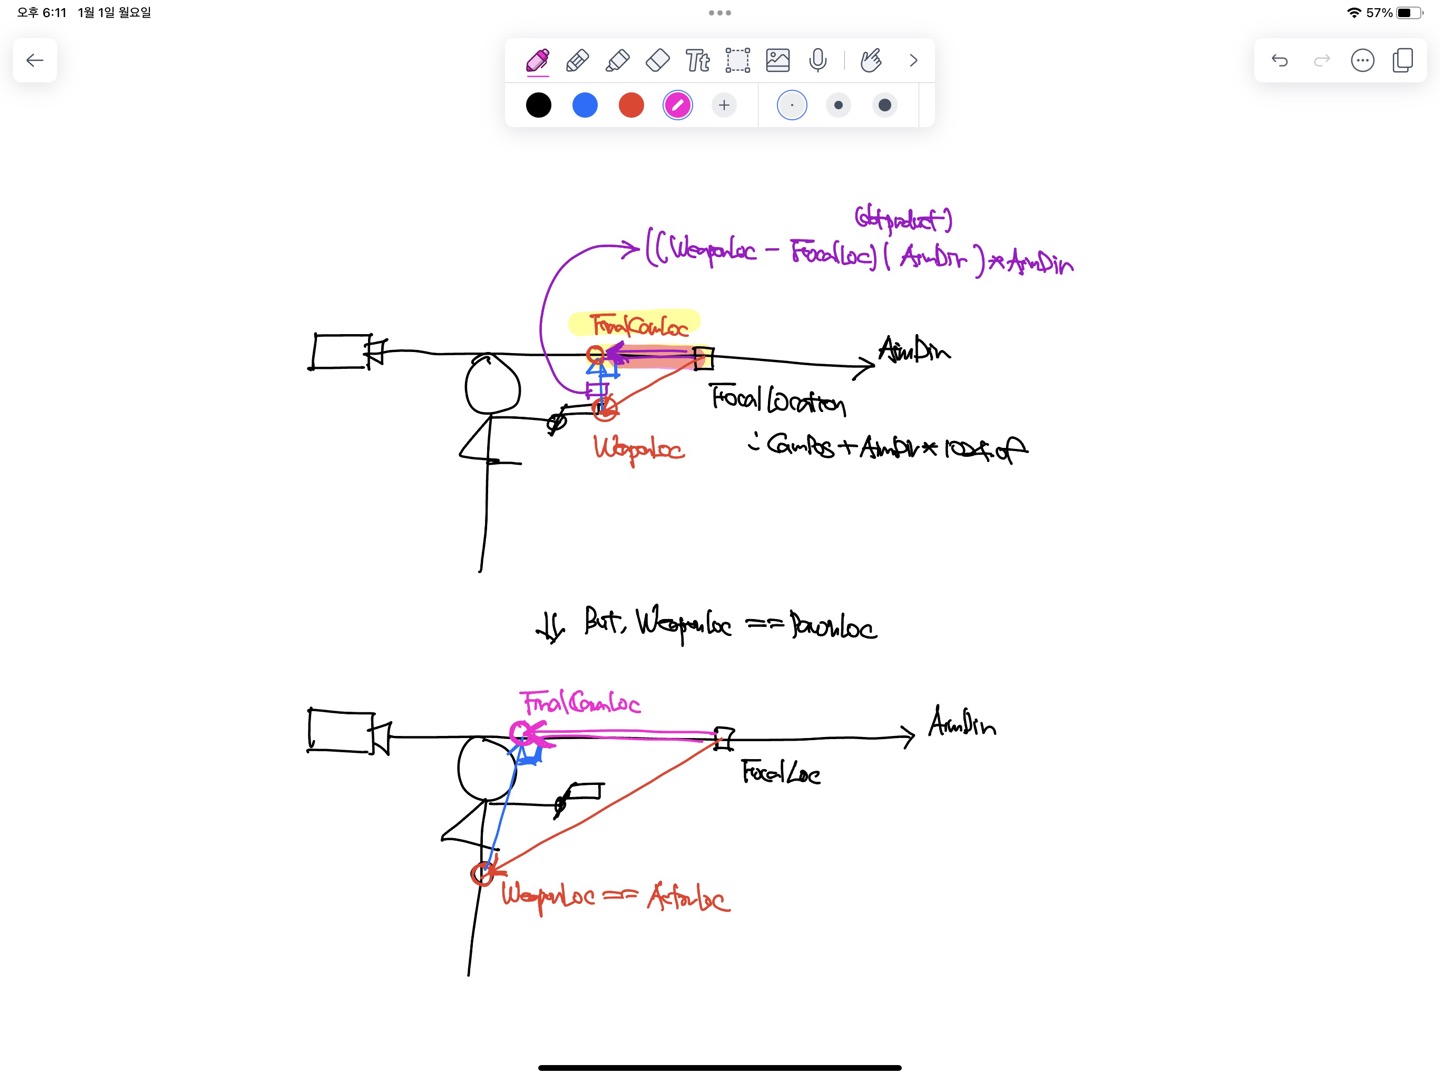 오후 6:11 1월 1일 월요일
57%
Tt
(dot product)
((WeaponLoc - FocalLoc)(AimDir)*AimDir
FinalCamLoc
AimDir
Focal Location
: CamPos + AimDir * 1024.0f
WeaponLoc
But, WeaponLoc == PawnLoc
FinalCamLoc
AimDir
FocalLoc
WeaponLoc == ActorLoc